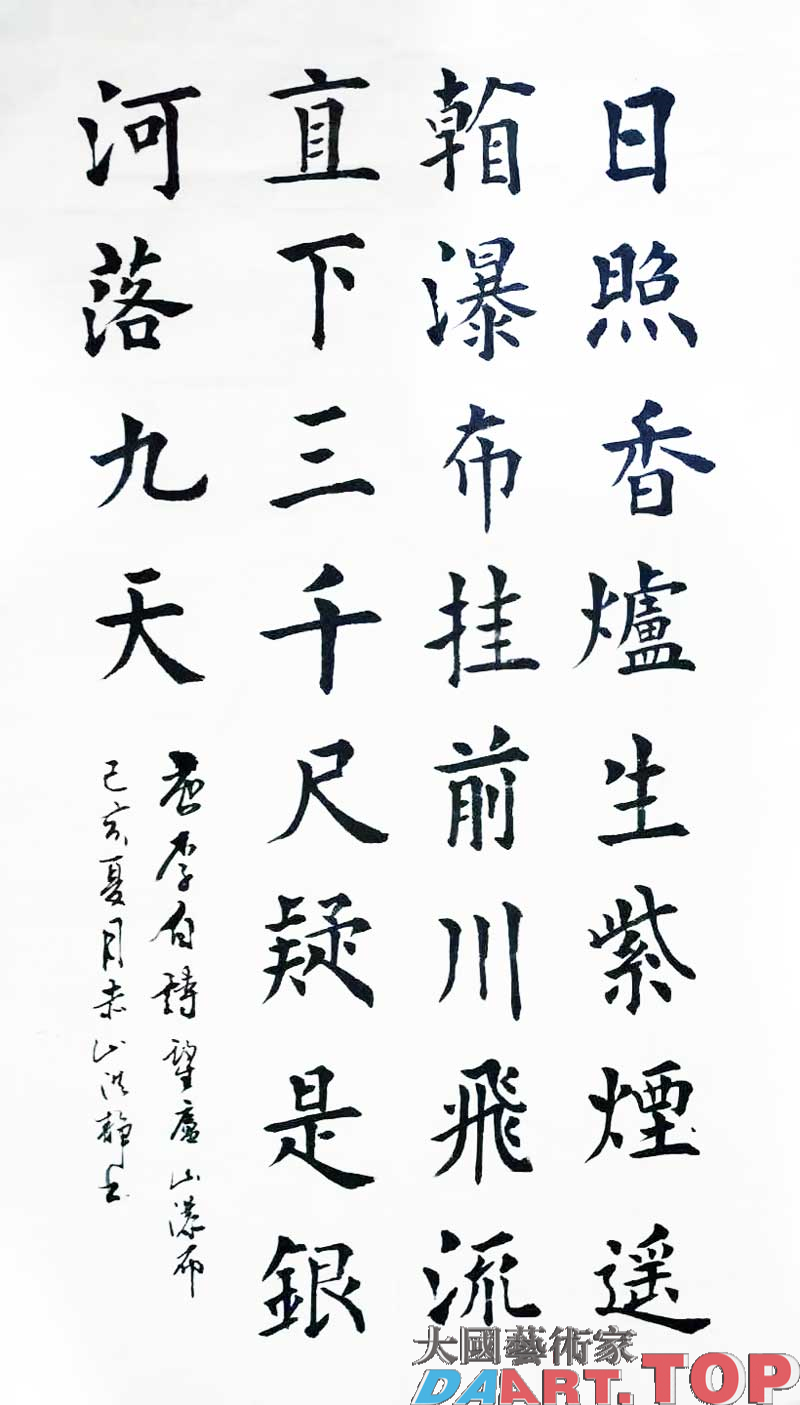 日照香爐生紫煙遥
看瀑布挂前川飛流
直下三千尺疑是銀
河落九天
唐李白詩望廬山瀑布
己亥夏月赤山洪静书
大國藝術家
DAART.TOP